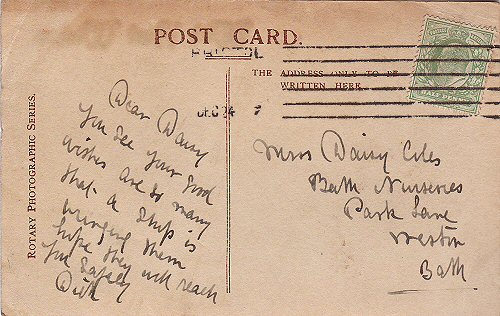 POST CARD.
BRISTOL
THE ADDRESS ONLY TO BE
WRITTEN HERE.
DEC 24 7
ROTARY PHOTOGRAPHIC SERIES.
Dear Daisy
You see your good
wishes are so many
that a ship is
bringing them
hope they will reach
you safely
Miss Daisy Coles
Bath Nurseries
Park Lane
Weston
Bath